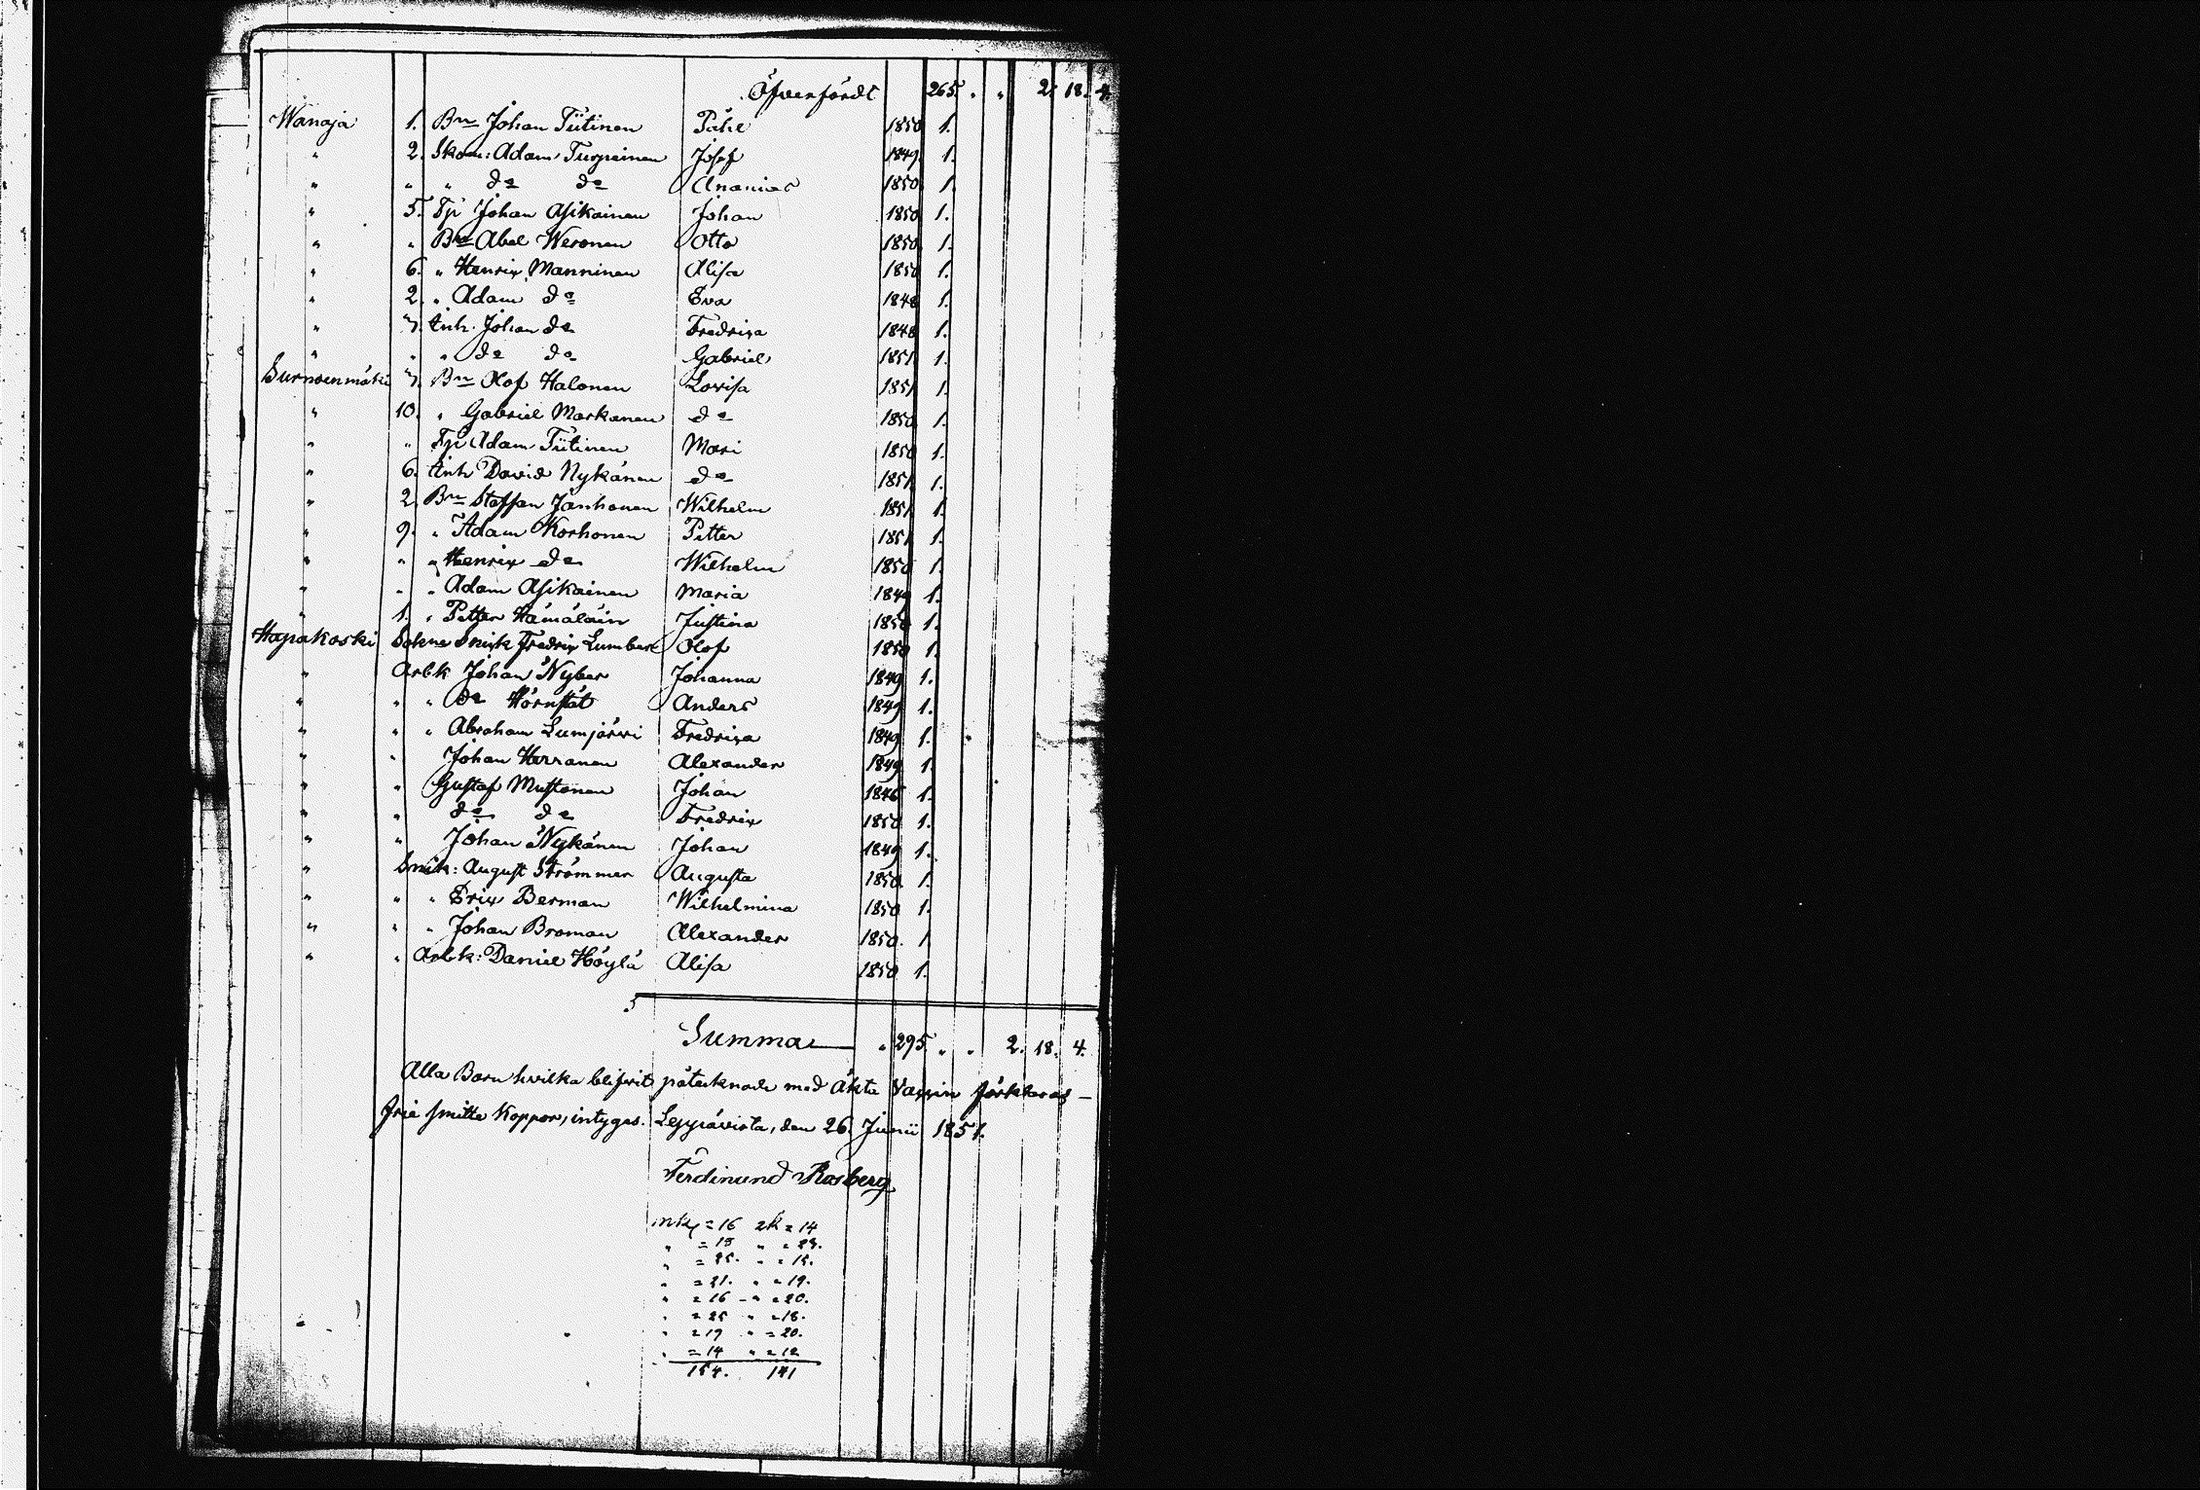 Öfverfördt 265. " " 2. 18. 4.
Wänajä 1. Bn Johan Tiitinen Påhl 1850 1.
" 2. Skom: Adam Turpeinen Josef 1849. 1.
" " " do do Ananias 1850 1.
" 5. Tjr Johan Asikainen Johan 1850 1.
" " Bn Abel Weronen Otto 1850 1.
" 6. " Henrix Manninen Alisa 1850 1.
" 2. " Adam do Eva 1848 1.
" 7. Inh. Johan do Fredrixa 1848 1.
" " " do do Gabriel 1851 1.
Surnoinmäki 7. Bn Olof Halonen Lovisa 1851 1.
" 10. " Gabriel Markanen do 1850 1.
" " Tjr Adam Tiitinen Mari 1850 1.
" 6. Inh David Nykänen do 1851 1.
" 2. Bn Staffan Janhonen Wilhelm 1851 1.
" 9. " Adam Korhonen Petter 1851 1.
" " " Henrix do Wilhelm 1850 1.
" " " Adam Asikainen Maria 1849 1.
" 1. " Petter Hämäläin Justina 1850 1.
Hapakoski Sokne Snixk Fredrix Lumberg Olof 1850 1.
" Arbk Johan Nyber Johanna 1849 1.
" " " do Hörnstät Anders 1849 1.
" " " Abraham Lumjärvi Fredrixa 1849 1.
" " Johan Herranen Alexander 1849 1.
" " Gustaf Mustonen Johan 1846 1.
" " do do Fredrix 1850 1.
" " Johan Nykänen Johan 1849 1.
" Snik: August Strömmer Augusta 1850. 1.
" " " Erix Berman Wilhelmina 1850 1.
" " " Johan Broman Alexander 1850. 1.
" " Arbk: Daniel Höylä Alisa 1850 1.
Summa " 295. " " 2. 18. 4.
Alla Barn hvilka blifvit påtecknade med Äkta Vaxxin förklaras
frie smitta Koppor, intygas. Leppävirta, den 26. Junii 1851.
Ferdinand Rosberg
mk = 16 2k = 14
" = 18 " = 23.
" = 25. " = 15.
" = 21. " = 19.
" = 16 " = 20.
" = 25 " = 18.
" = 19 " = 20.
" = 14 " = 12
154. 141